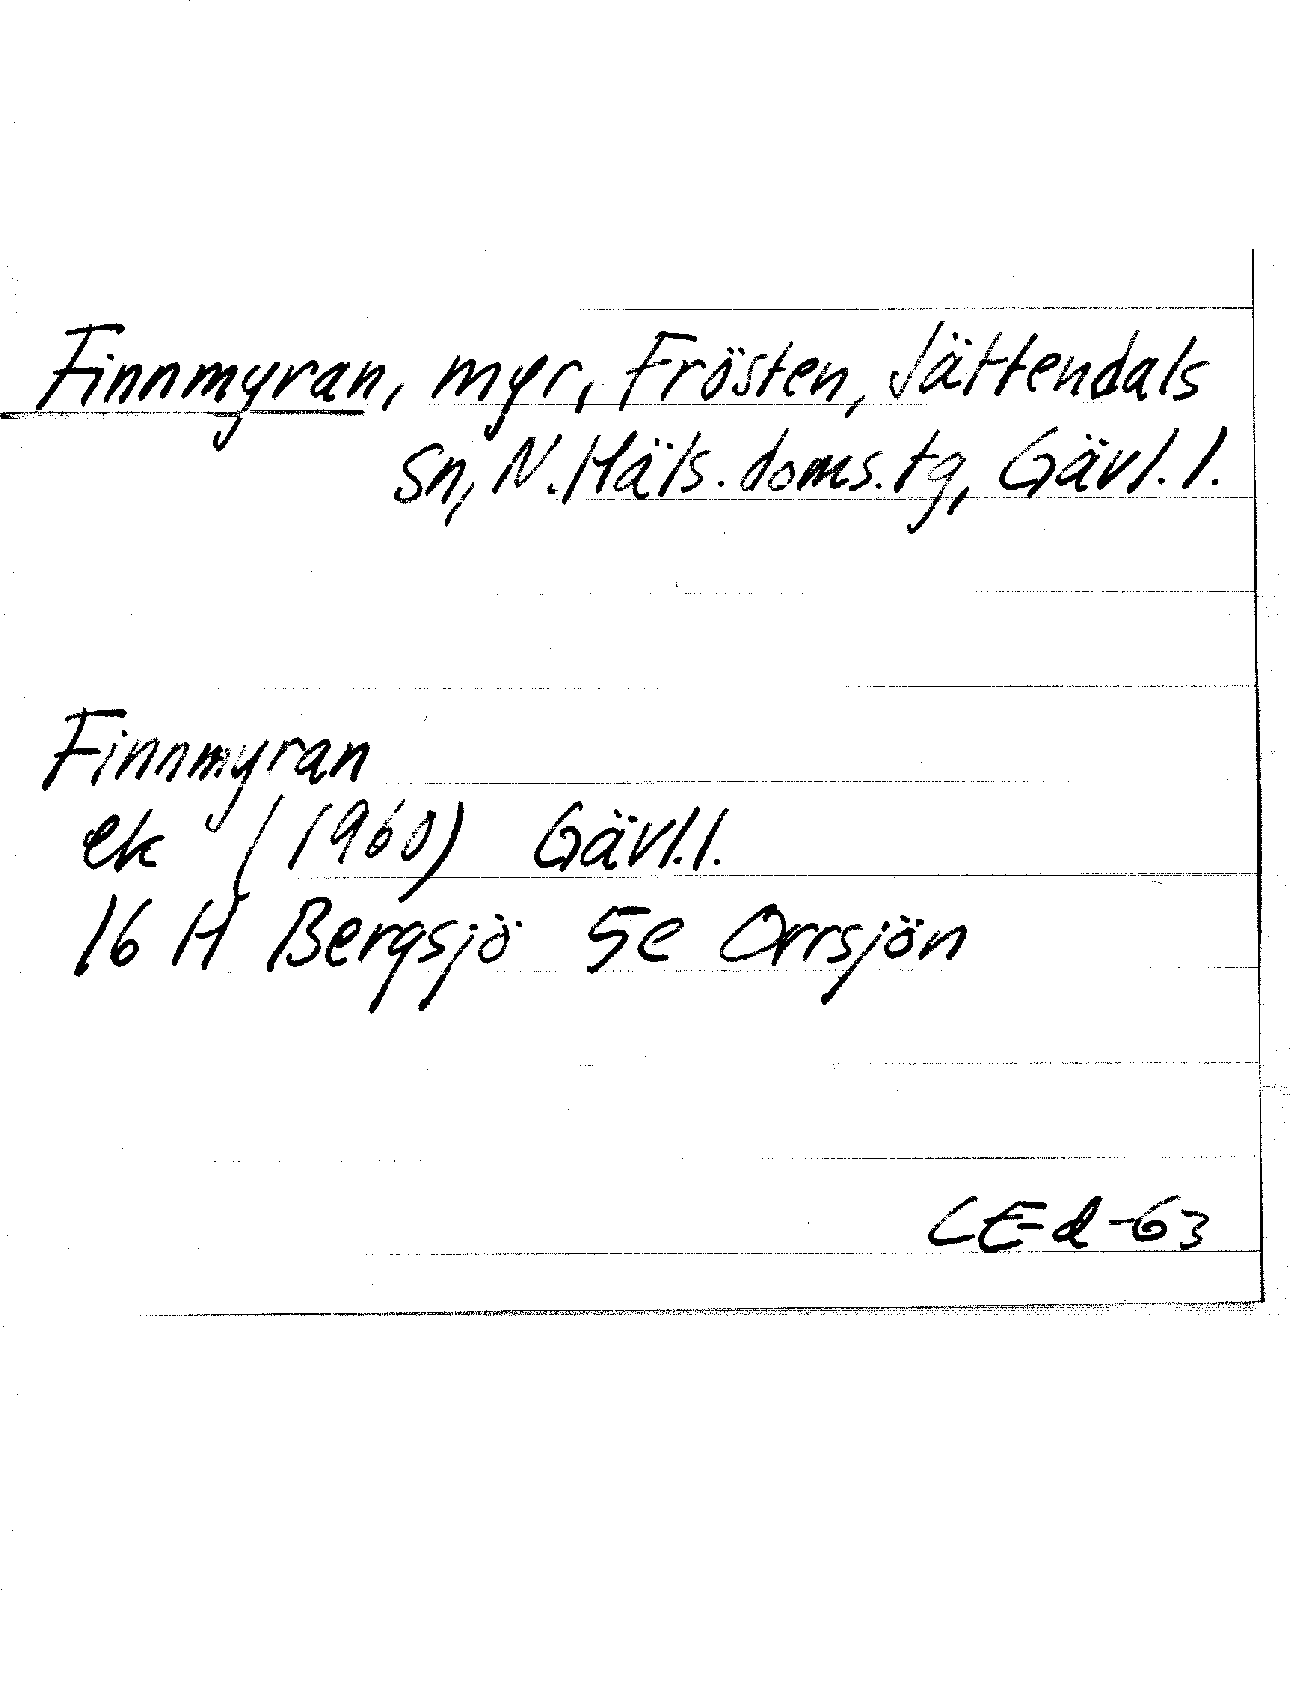 Finnmyran, myr, Frösten, Jättendals
sn, N. Häls. doms. tg, Gävl. l.
Finnmyran
ek (1960) Gävl. l.
16 H Bergsjö 5e Orrsjön
CEd -63